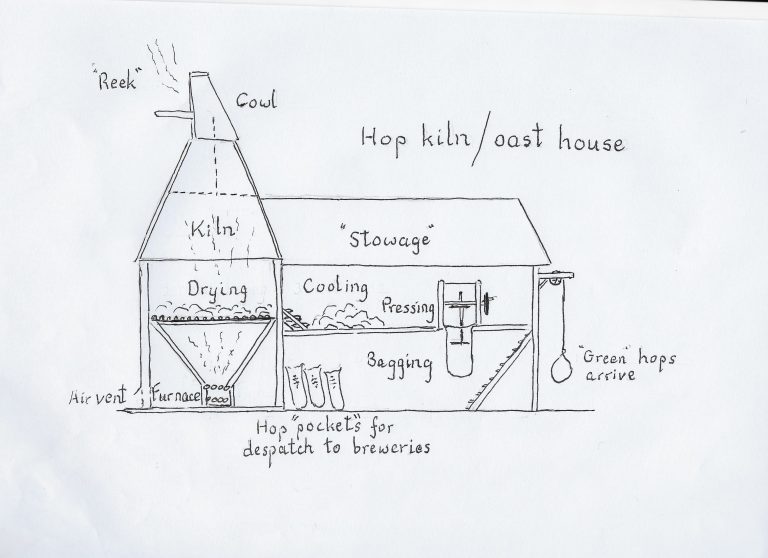 "Reek"
Cowl
Hop kiln/oast house
Kiln
"Stowage"
Drying
Cooling
Pressing
Bagging
"Green" hops
arrive
Air vent
Furnace
Hop "pockets" for
despatch to breweries